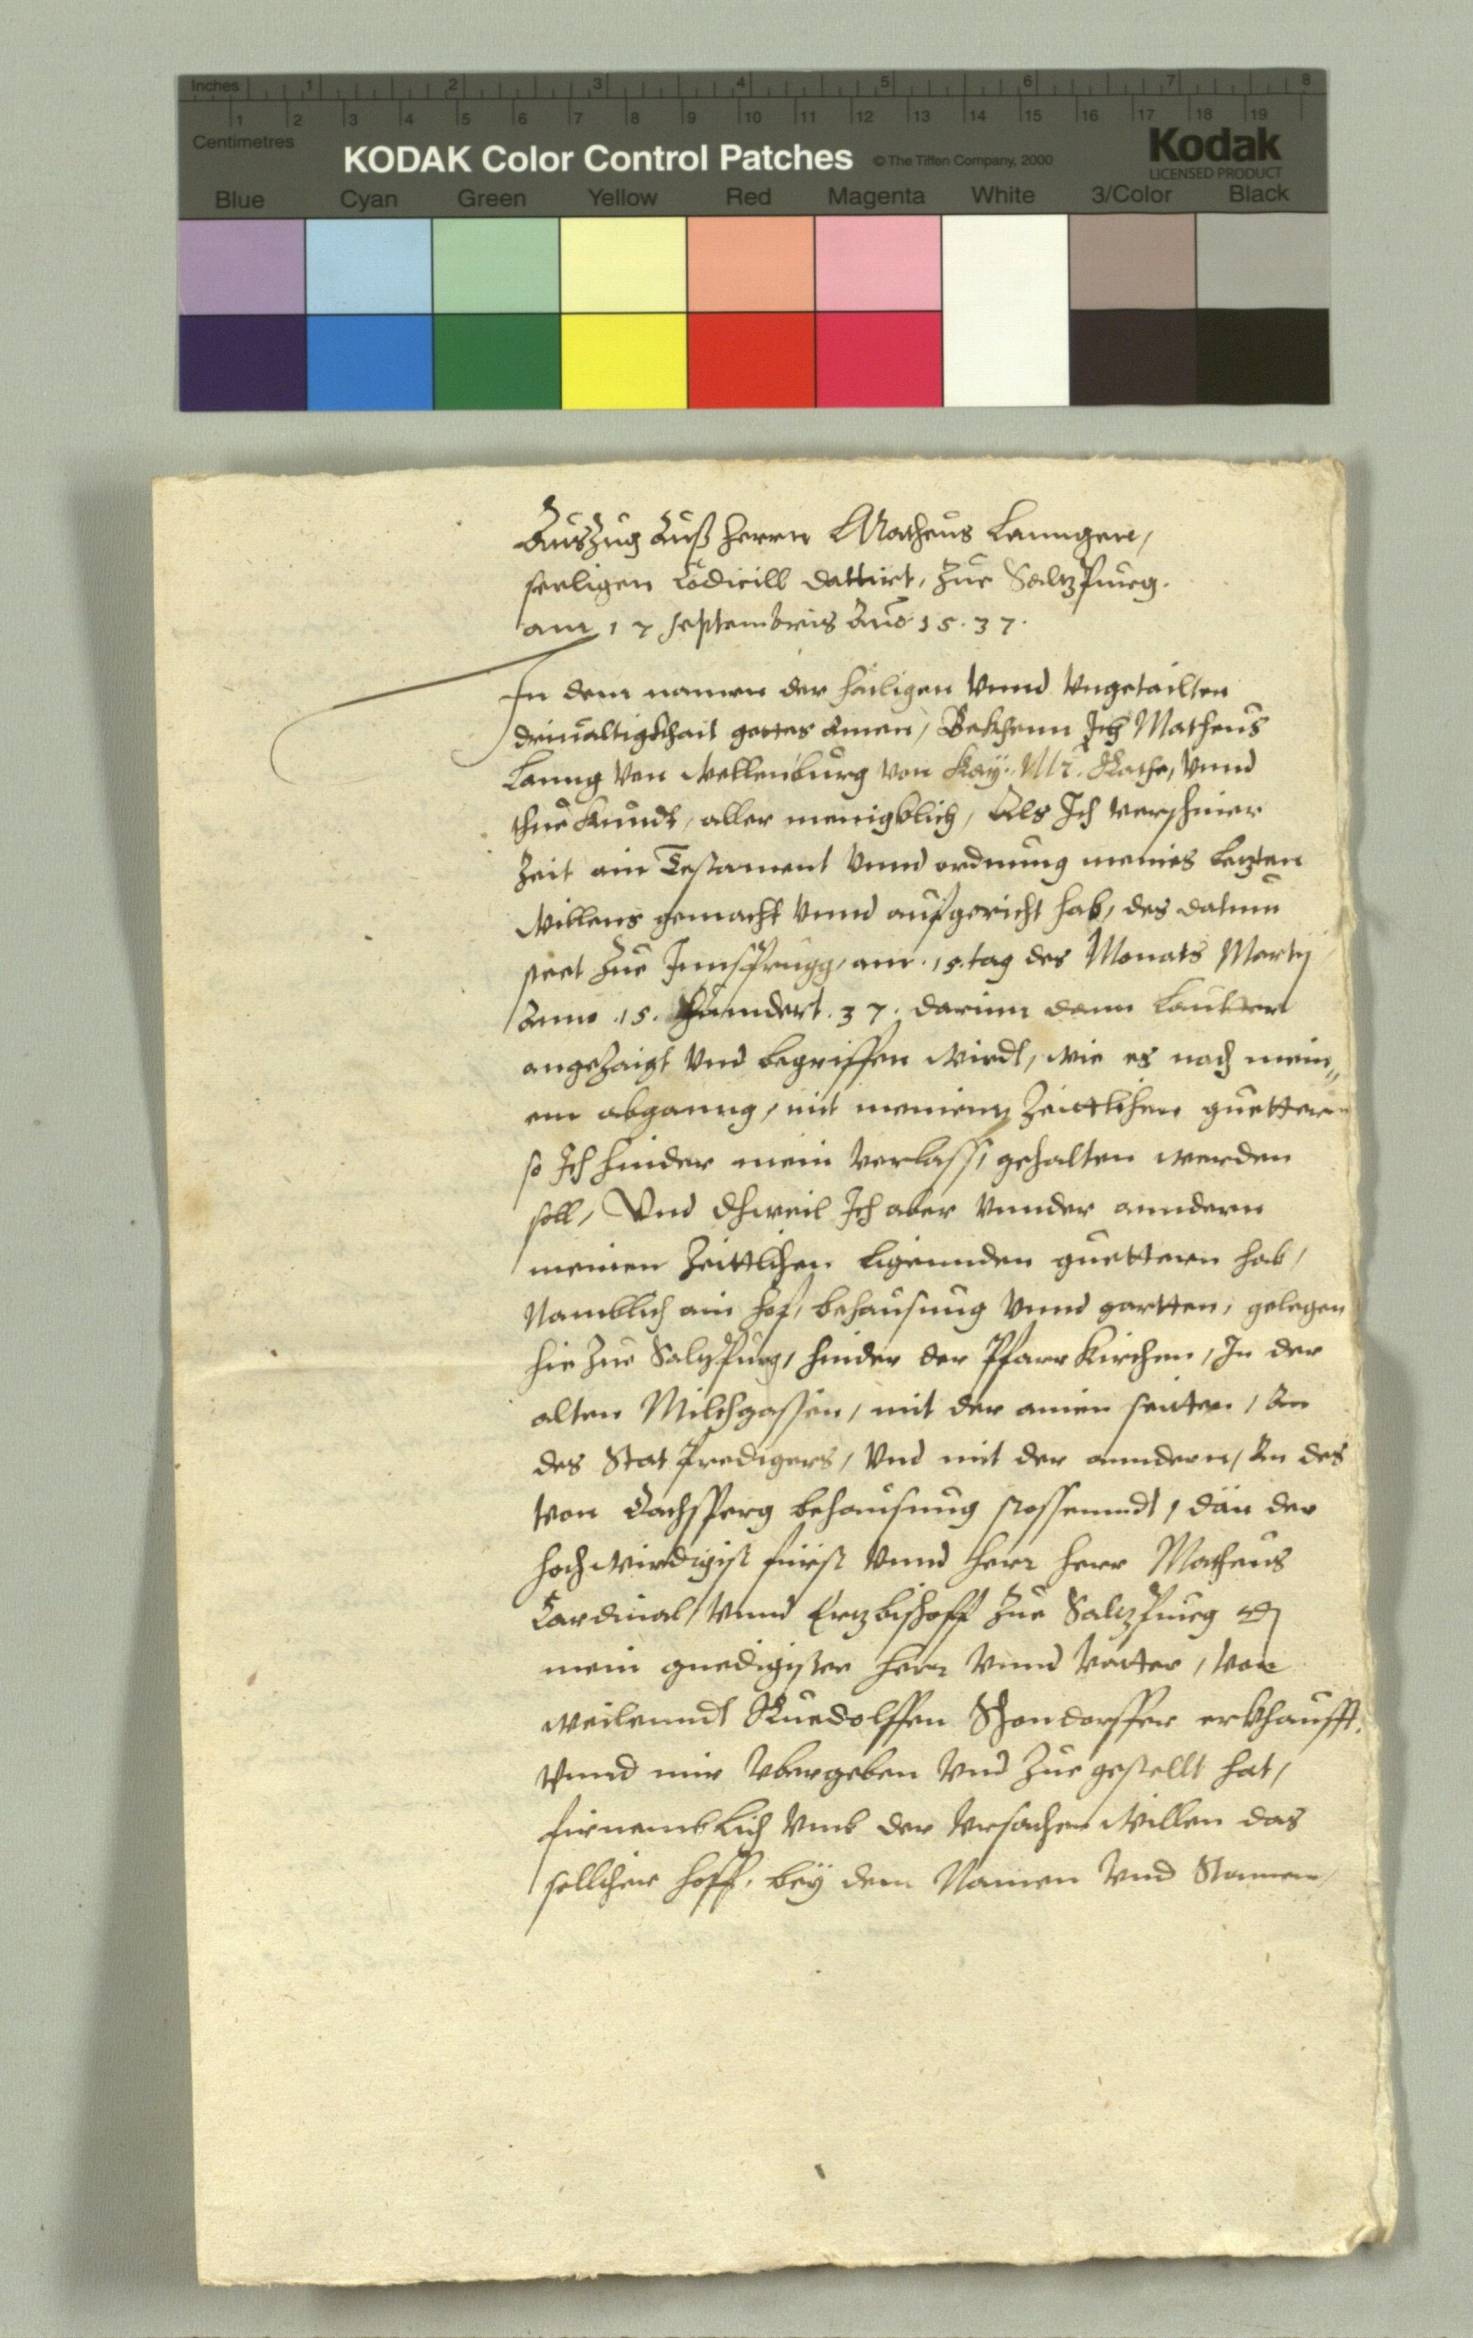 Inches 1 2 3 4 5 6 7 8
1 2 3 4 5 6 7 8 9 10 11 12 13 14 15 16 17 18 19
Centimetres
KODAK Color Control Patches © The Tiffen Company, 2000 Kodak
LICENSED PRODUCT
Blue Cyan Green Yellow Red Magenta White 3/Color Black
Auszug auß herrn Matheus Lanngen,
seeligen Codicill dattiert, zue Saltzpurg.
am 17 septembris Anno 15.37.
In dem namen der hailigen vnnd vngetailten
driualtigkhait gottes Amen, Bekhenn Ich Matheus
Lanng von Wellenburg von Kay: Mt. Rathe, vnnd
thue kundt, aller menigklich, Als Ich verschiner
Zeit ain Testament vnnd ordnung meines letzten
willens gemacht vnnd aufgericht hab, des datum
steet zue Innsprugg, am .15. tag des Monats Martij
Anno .15. hundert .37. darinn dann lautter
angezaigt vnd begriffen wirdt, wie es nach mein„
em abganng, mit meinen zeittlichen guettern
so Ich hinder mein verlass, gehalten werden
soll, Vnd dhweil Ich aber vnnder anndern
meinen zeittlichen ligennden guettern hab,
Namblich ain hof, behausung vnnd gartten, gelegen
hie zue Saltzpurg, hinder der Pfarr Kirchen, In der
alten Milchgassen, mit der ainen seitten, An
des Stat predigers, vnd mit der anndern, An des
von Dachsperg behausung stossenndt, den der
hochwirdigist fürst vnnd herr herr Matheus
Cardinal vnnd Ertzbischoff zue Saltzpurg etc
mein gnedigister herr vnnd vetter, von
weilenndt Ruedolffen Schondorffer erkhaufft.
vnnd mir vbergeben vnd zue gestellt hat,
fürnemblich vmb der vrsachen willen das
sollicher hoff, bey dem Namen vnd Stamen